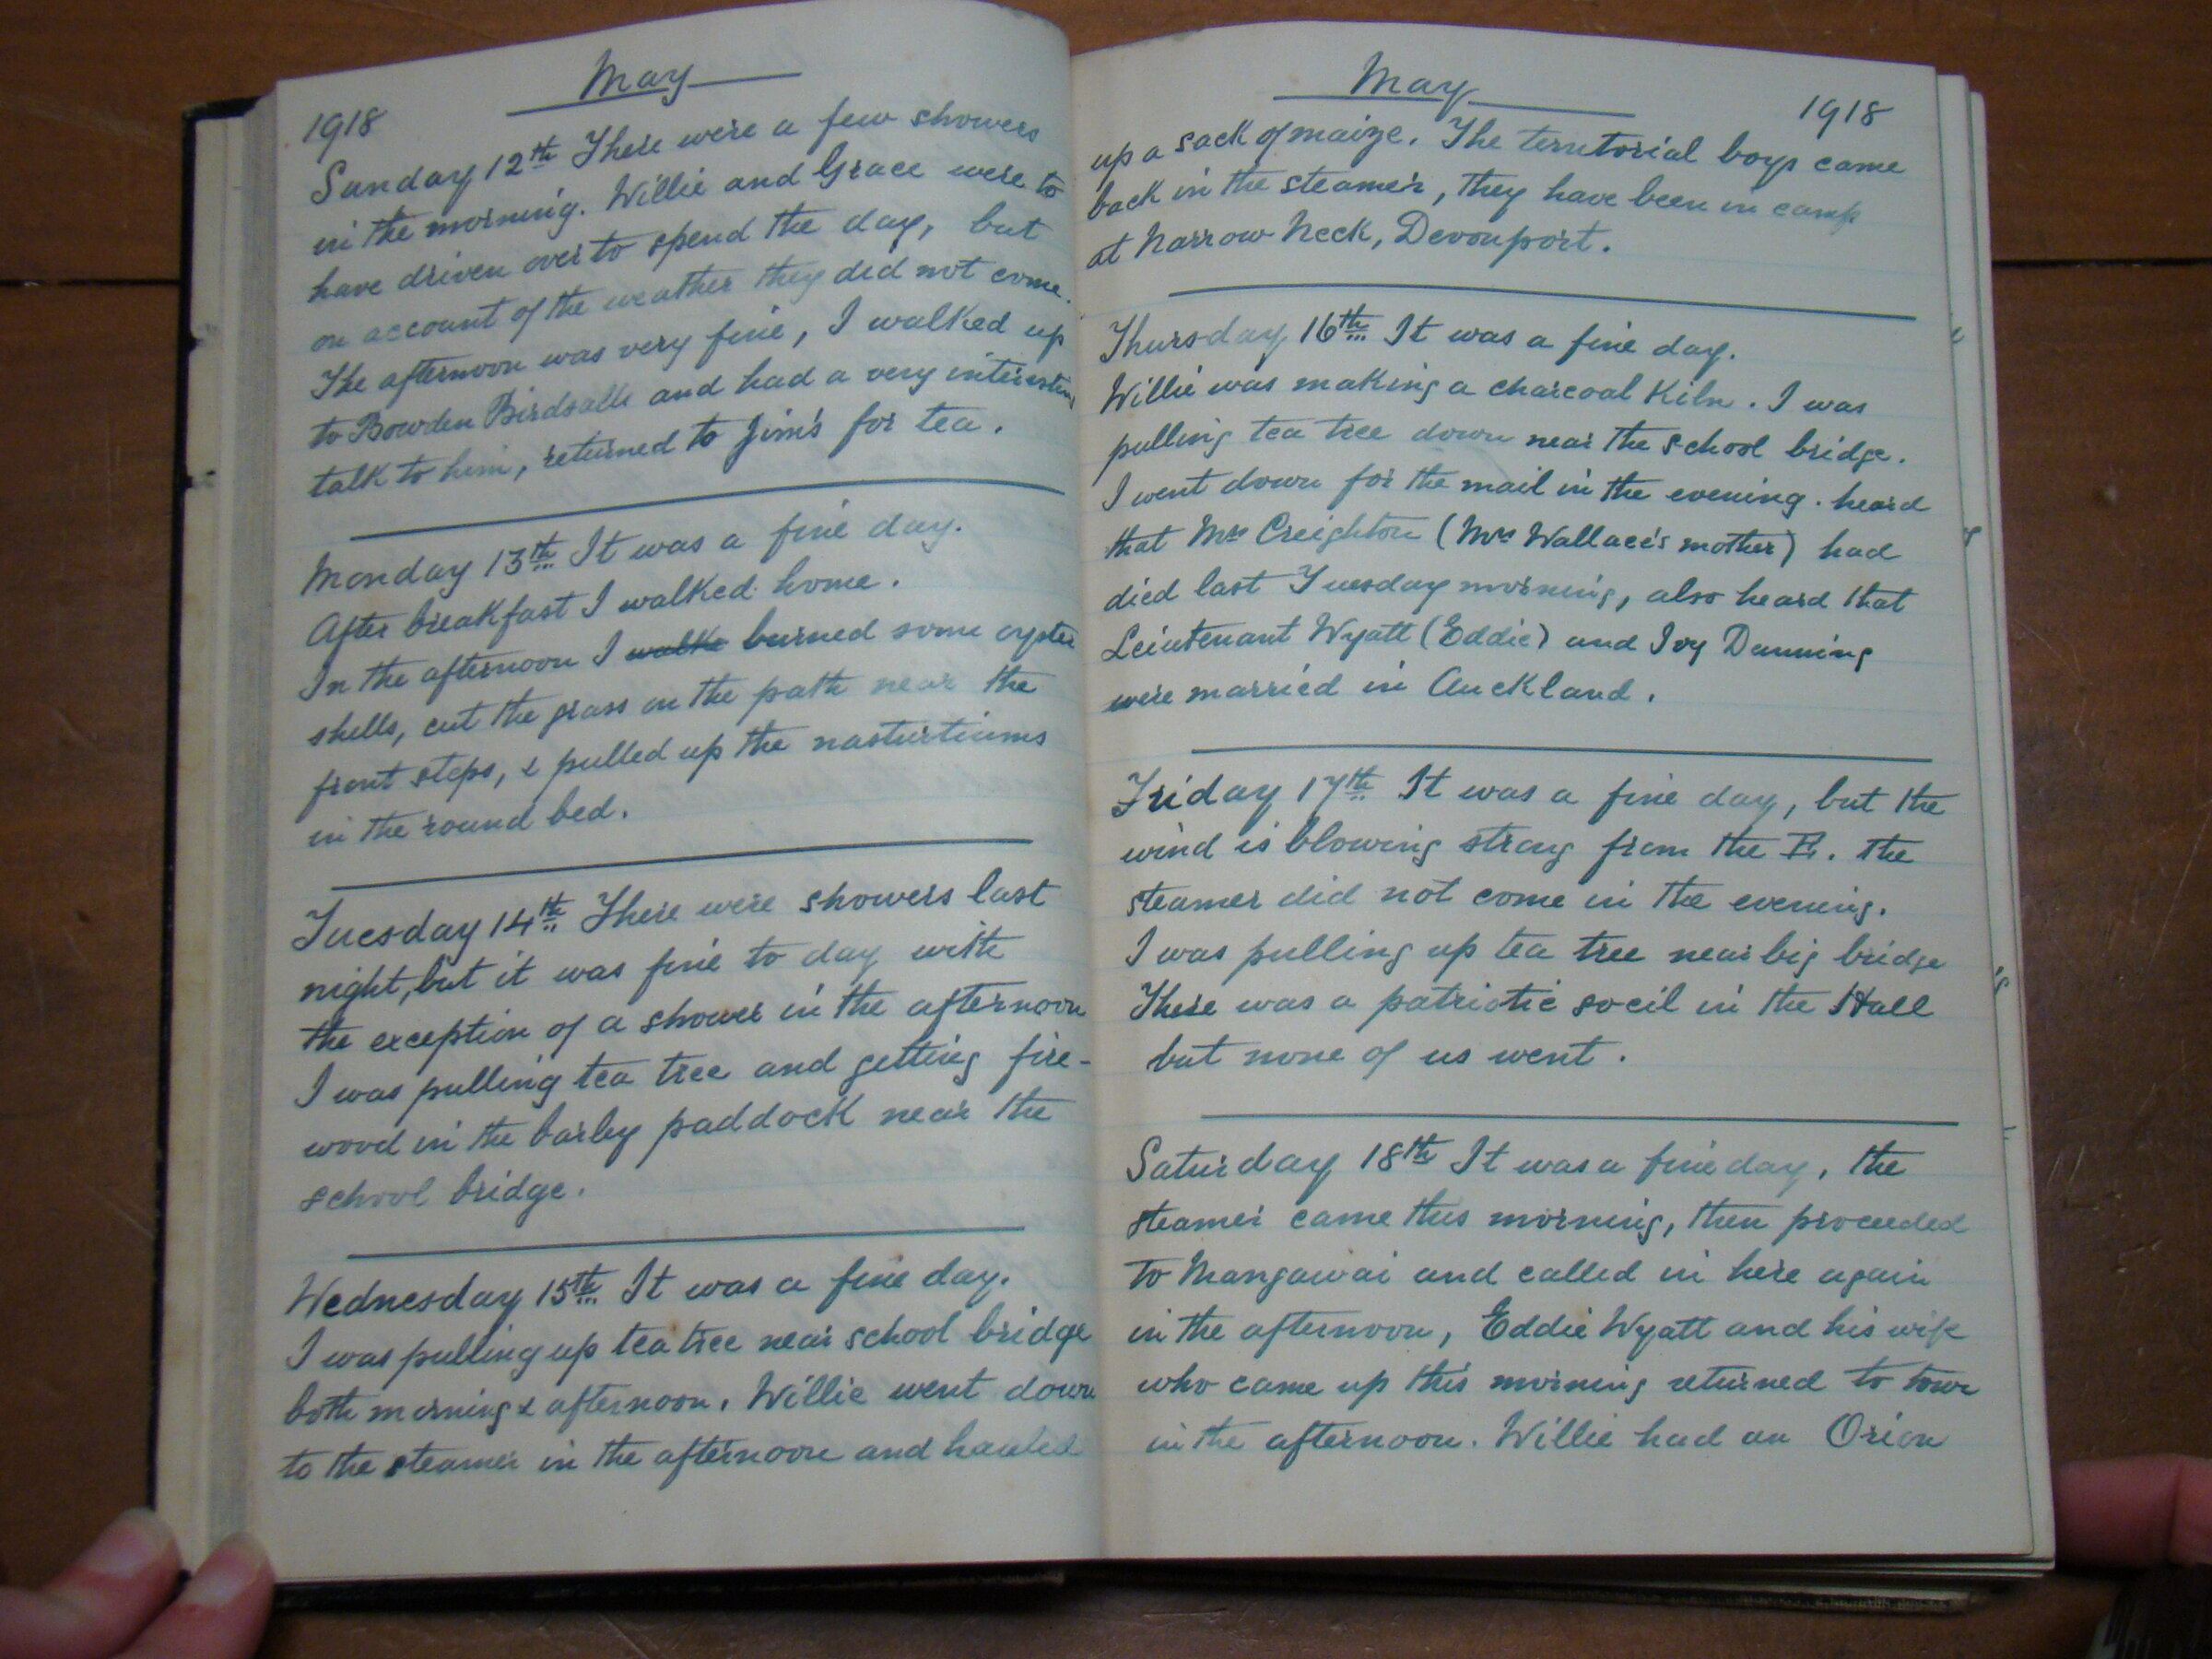 May
1918
Sunday 12th There were a few showers
in the morning. Willie and Grace were to
have driven over to spend the day, but
on account of the weather they did not come.
The afternoon was very fine, I walked up
to Bowden Birdsalls and had a very interesting
talk to him, returned to Jim's for tea.
Monday 13th It was a fine day.
After breakfast I walked home.
In the afternoon I walke burned some oyster
shells, cut the grass on the path near the
front steps, & pulled up the nasturtiums
in the round bed.
Tuesday 14th There were showers last
night, but it was fine to day with
the exception of a shower in the afternoon
I was pulling tea tree and getting fire-
wood in the barley paddock near the
school bridge.
Wednesday 15th It was a fine day.
I was pulling up tea tree near school bridge
both morning & afternoon. Willie went down
to the steamer in the afternoon and hauled
May
1918
up a sack of maize. The territorial boys came
back in the steamer, they have been in camp
at Narrow Neck, Devonport.
Thursday 16th It was a fine day.
Willie was making a charcoal Kiln. I was
pulling tea tree down near the school bridge.
I went down for the mail in the evening. heard
that Mrs Creighton (Mrs Wallace's mother) had
died last Tuesday morning, also heard that
Leiutenant Wyatt (Eddie) and Ivy Dunning
were married in Auckland.
Friday 17th It was a fine day, but the
wind is blowing strong from the E. the
steamer did not come in the evening.
I was pulling up tea tree near big bridge
There was a patriotic socil in the Hall
but none of us went.
Saturday 18th It was a fine day, the
steamer came this morning, then proceeded
to Mangawai and called in here again
in the afternoon, Eddie Wyatt and his wife
who came up this morning returned to town
in the afternoon. Willie had an Orion